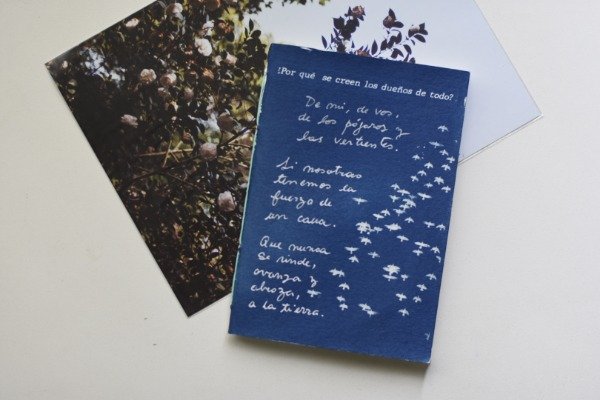 ¿Por qué se creen los dueños de todo?
De mi, de vos,
de los pájaros y
las vertientes.
Si nosotras
tenemos la
fuerza de
un
Que nunca
se rinde,
avanza y
abraza,
a la tierra.